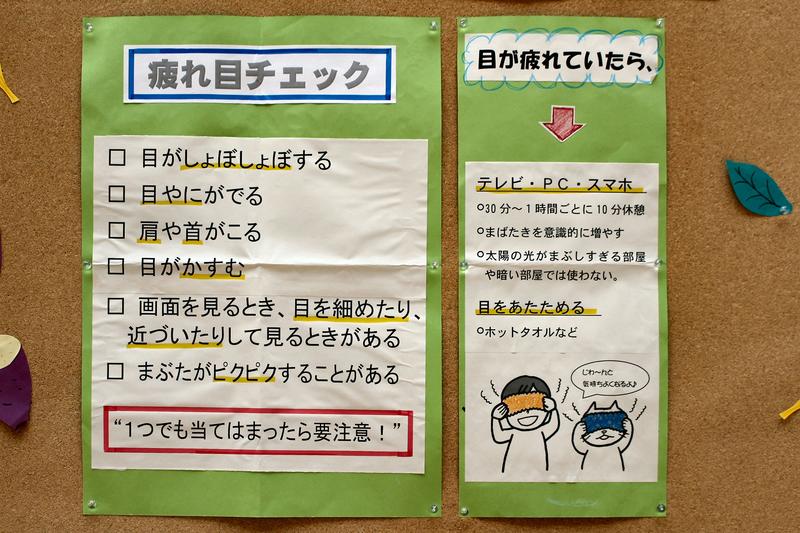 疲れ目チェック
□ 目がしょぼしょぼする
□ 目やにがでる
□ 肩や首がこる
□ 目がかすむ
□ 画面を見るとき、目を細めたり、
近づいたりして見るときがある
□ まぶたがピクピクすることがある
“1つでも当てはまったら要注意！”
目が疲れていたら、
テレビ・PC・スマホ
○30分～1時間ごとに10分休憩
○まばたきを意識的に増やす
○太陽の光がまぶしすぎる部屋
や暗い部屋では使わない。
目をあたためる
○ホットタオルなど
じわ～んと
気持ちよくなるよ♪